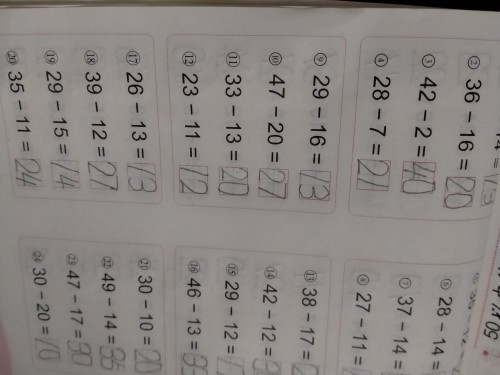 ② 36 − 16 = 20
③ 42 − 2 = 40
④ 28 − 7 = 21
⑥ 28 − 14 =
⑦ 37 − 14 =
⑧ 27 − 11 =
⑨ 29 − 16 = 13
⑩ 47 − 20 = 27
⑪ 33 − 13 = 20
⑫ 23 − 11 = 12
⑬ 38 − 17 =
⑭ 42 − 12 =
⑮ 29 − 12 =
⑯ 46 − 13 =
⑰ 26 − 13 = 13
⑱ 39 − 12 = 27
⑲ 29 − 15 = 14
⑳ 35 − 11 = 24
㉑ 30 − 10 = 20
㉒ 49 − 14 = 35
㉓ 47 − 17 = 30
㉔ 30 − 20 = 10